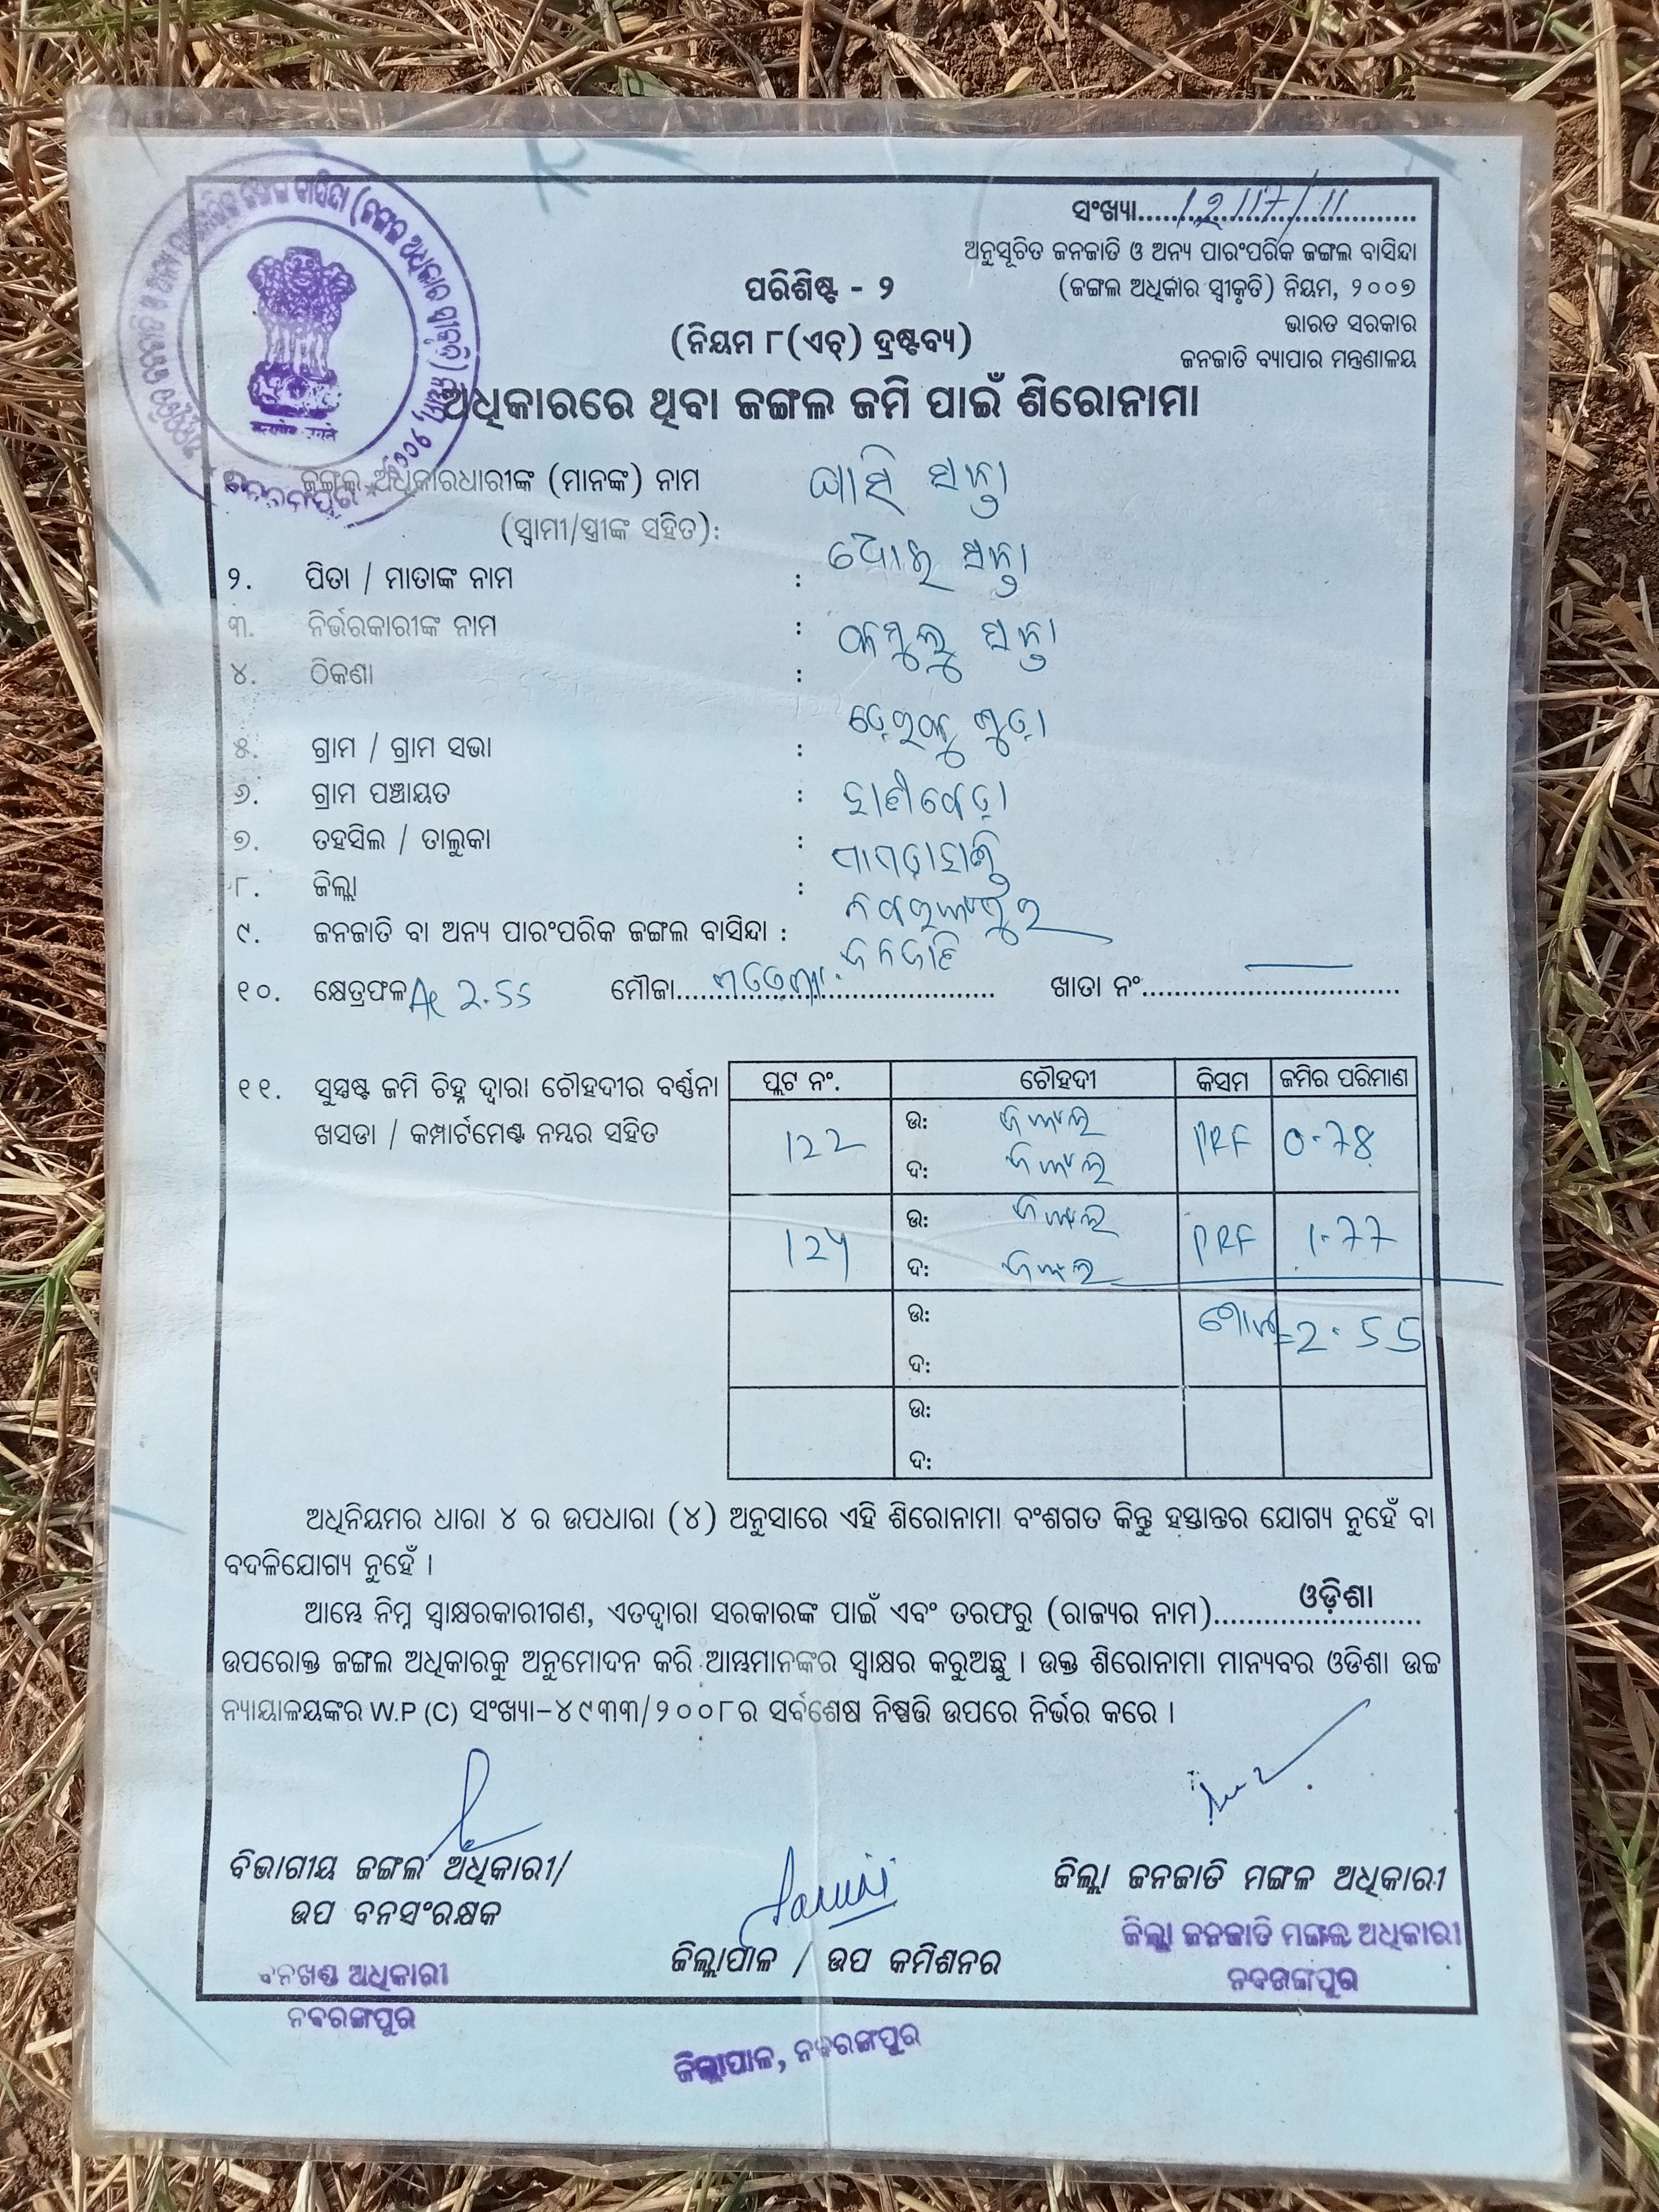 ସଂଖ୍ୟା....12117/11....
ଅନୁସୂଚିତ ଜନଜାତି ଓ ଅନ୍ୟ ପାରଂପରିକ ଜଙ୍ଗଲ ବାସିନ୍ଦା
(ଜଙ୍ଗଲ ଅଧିକାର ସ୍ୱୀକୃତି) ନିୟମ, ୨୦୦୭
ଭାରତ ସରକାର
ଜନଜାତି ବ୍ୟାପାର ମନ୍ତ୍ରଣାଳୟ
ପରିଶିଷ୍ଟ - ୨
(ନିୟମ ୮(ଏଚ୍) ଦ୍ରଷ୍ଟବ୍ୟ)
ଅଧିକାରରେ ଥିବା ଜଙ୍ଗଲ ଜମି ପାଇଁ ଶିରୋନାମା
ଜଙ୍ଗଲ ଅଧିକାରଧାରୀଙ୍କ (ମାନଙ୍କ) ନାମ
(ସ୍ୱାମୀ/ସ୍ତ୍ରୀଙ୍କ ସହିତ):
୨. ପିତା / ମାତାଙ୍କ ନାମ :
୩. ନିର୍ଭରକାରୀଙ୍କ ନାମ :
୪. ଠିକଣା :
୫. ଗ୍ରାମ / ଗ୍ରାମ ସଭା :
୬. ଗ୍ରାମ ପଞ୍ଚାୟତ :
୭. ତହସିଲ / ତାଲୁକା :
୮. ଜିଲ୍ଲା : ନବରଙ୍ଗପୁର
୯. ଜନଜାତି ବା ଅନ୍ୟ ପାରଂପରିକ ଜଙ୍ଗଲ ବାସିନ୍ଦା : ଜନଜାତି
୧୦. କ୍ଷେତ୍ରଫଳ Ac 2.55 ମୌଜା.... ଖାତା ନଂ....
୧୧. ସୁସ୍ତଷ୍ଟ ଜମି ଚିହ୍ନ ଦ୍ୱାରା ଚୌହଦୀର ବର୍ଣ୍ଣନା
ଖସଡା / କମ୍ପାର୍ଟମେଣ୍ଟ ନମ୍ବର ସହିତ
ପ୍ଲଟ ନଂ. ଚୌହଦୀ କିସମ ଜମିର ପରିମାଣ
122 ଉ: ଜଙ୍ଗଲ PRF 0.78
ଦ: ଜଙ୍ଗଲ
ଉ: ଜଙ୍ଗଲ PRF 1.77
ଦ: ଜଙ୍ଗଲ
ଉ: =2.55
ଦ:
ଉ:
ଦ:
ଅଧିନିୟମର ଧାରା ୪ ର ଉପଧାରା (୪) ଅନୁସାରେ ଏହି ଶିରୋନାମା ବଂଶଗତ କିନ୍ତୁ ହସ୍ତାନ୍ତର ଯୋଗ୍ୟ ନୁହେଁ ବା
ବଦଳିଯୋଗ୍ୟ ନୁହେଁ ।
ଆମ୍ଭେ ନିମ୍ନ ସ୍ୱାକ୍ଷରକାରୀଗଣ, ଏତଦ୍ୱାରା ସରକାରଙ୍କ ପାଇଁ ଏବଂ ତରଫରୁ (ରାଜ୍ୟର ନାମ)....ଓଡ଼ିଶା....
ଉପରୋକ୍ତ ଜଙ୍ଗଲ ଅଧିକାରକୁ ଅନୁମୋଦନ କରି ଆମ୍ଭମାନଙ୍କର ସ୍ୱାକ୍ଷର କରୁଅଛୁ । ଉକ୍ତ ଶିରୋନାମା ମାନ୍ୟବର ଓଡିଶା ଉଚ୍ଚ
ନ୍ୟାୟାଳୟଙ୍କର W.P (C) ସଂଖ୍ୟା-୪୯୩୩/୨୦୦୮ର ସର୍ବଶେଷ ନିଷ୍ପତ୍ତି ଉପରେ ନିର୍ଭର କରେ ।
ବିଭାଗୀୟ ଜଙ୍ଗଲ ଅଧିକାରୀ/
ଉପ ବନସଂରକ୍ଷକ
ବନଖଣ୍ଡ ଅଧିକାରୀ
ନବରଙ୍ଗପୁର
ଜିଲ୍ଲାପାଳ / ଉପ କମିଶନର
ଜିଲ୍ଲାପାଳ, ନବରଙ୍ଗପୁର
ଜିଲ୍ଲା ଜନଜାତି ମଙ୍ଗଳ ଅଧିକାରୀ
ଜିଲ୍ଲା ଜନଜାତି ମଙ୍ଗଳ ଅଧିକାରୀ
ନବରଙ୍ଗପୁର